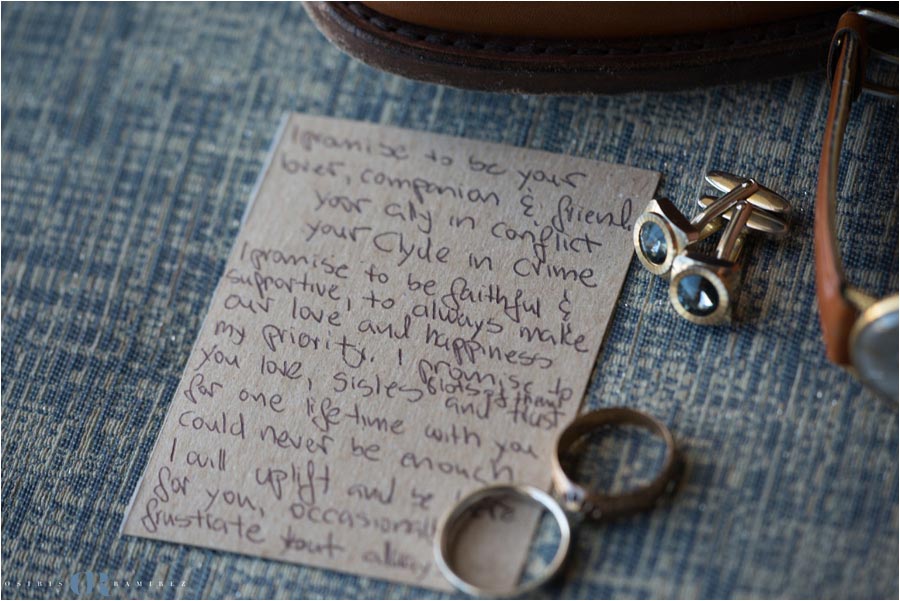 I promise to be your
lover, companion & friend,
your ally in conflict
your Clyde in crime
I promise to be faithful &
supportive, to always make
our love and happiness
my priority. I promise to
you love, and trust
for one lifetime with you
could never be enough
I will uplift and be
for you, occasionally
frustrate you
OSIRIS OR RAMIREZ